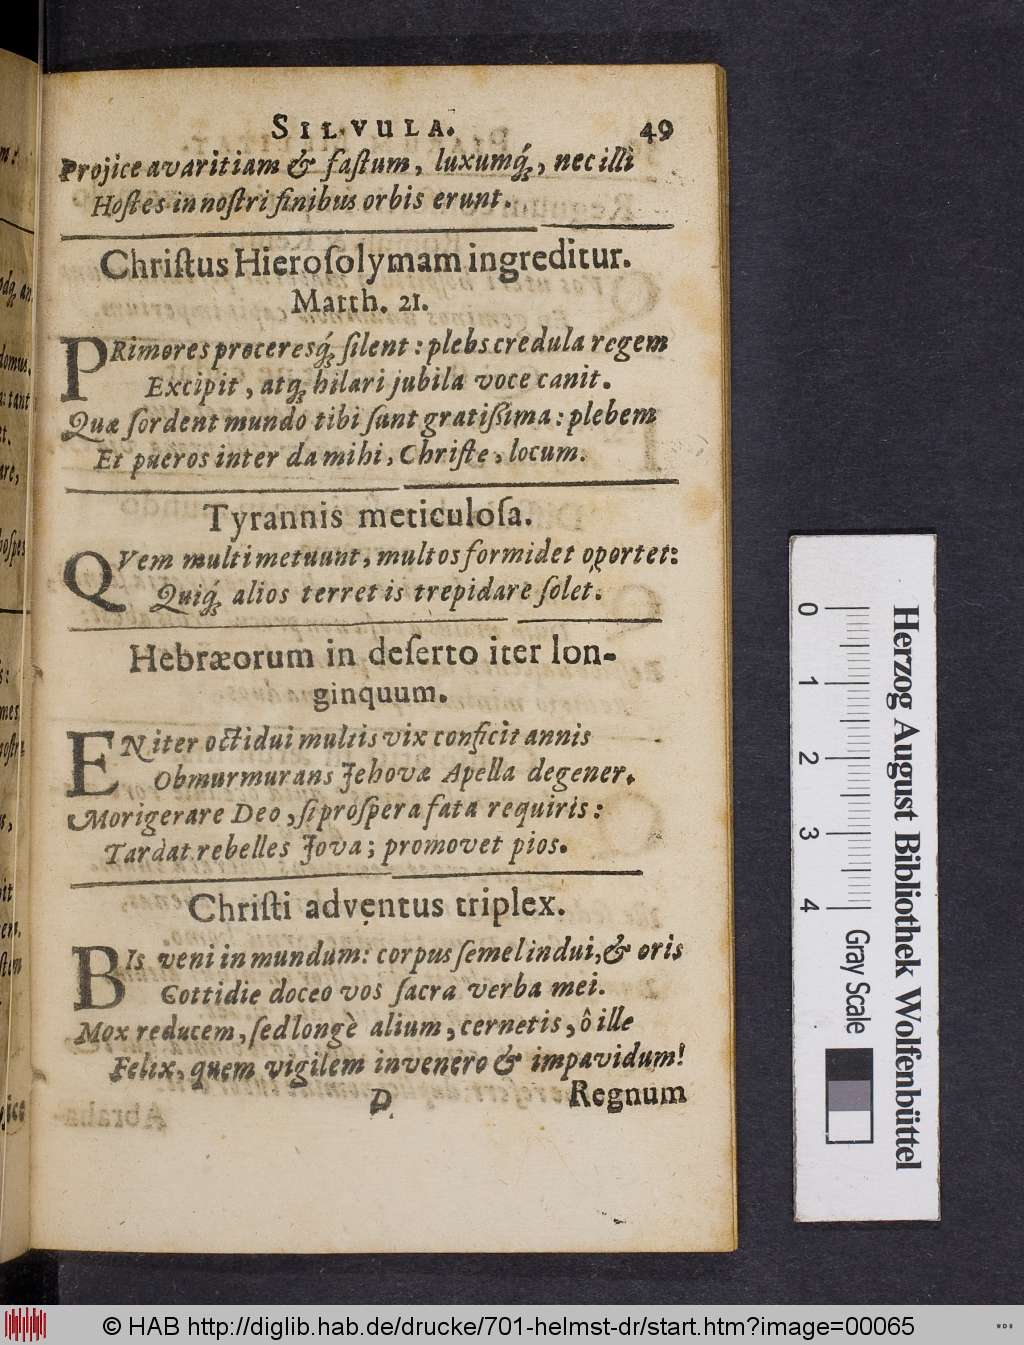 SILVULA. 49
Projice avaritiam & faſtum, luxumq́;, nec illi
Hoſtes in noſtri finibus orbis erunt.
Chriſtus Hieroſolymam ingreditur.
Matth. 21.
PRimores proceresq́; ſilent: plebs credula regem
Excipit, atq; hilari jubila voce canit.
Quæ ſordent mundo tibi ſunt gratiſſima: plebem
Et pueros inter da mihi, Chriſte, locum.
Tyrannis meticuloſa.
QVem multi metuunt, multos formidet oportet:
Quiq́; alios terret is trepidare ſolet.
Hebræorum in deſerto iter lon-
ginquum.
EN iter octidui multis vix conficit annis
Obmurmurans Jehovæ Apella degener.
Morigerare Deo, ſi proſpera fata requiris:
Tardat rebelles Jova; promovet pios.
Chriſti adventus triplex.
BIs veni in mundum: corpus ſemel indui, & oris
Cottidie doceo vos ſacra verba mei.
Mox reducem, ſed longè alium, cernetis, ô ille
Felix, quem vigilem invenero & impavidum!
D Regnum
0 1 2 3 4
Gray Scale
Herzog August Bibliothek Wolfenbüttel
© HAB http://diglib.hab.de/drucke/701-helmst-dr/start.htm?image=00065